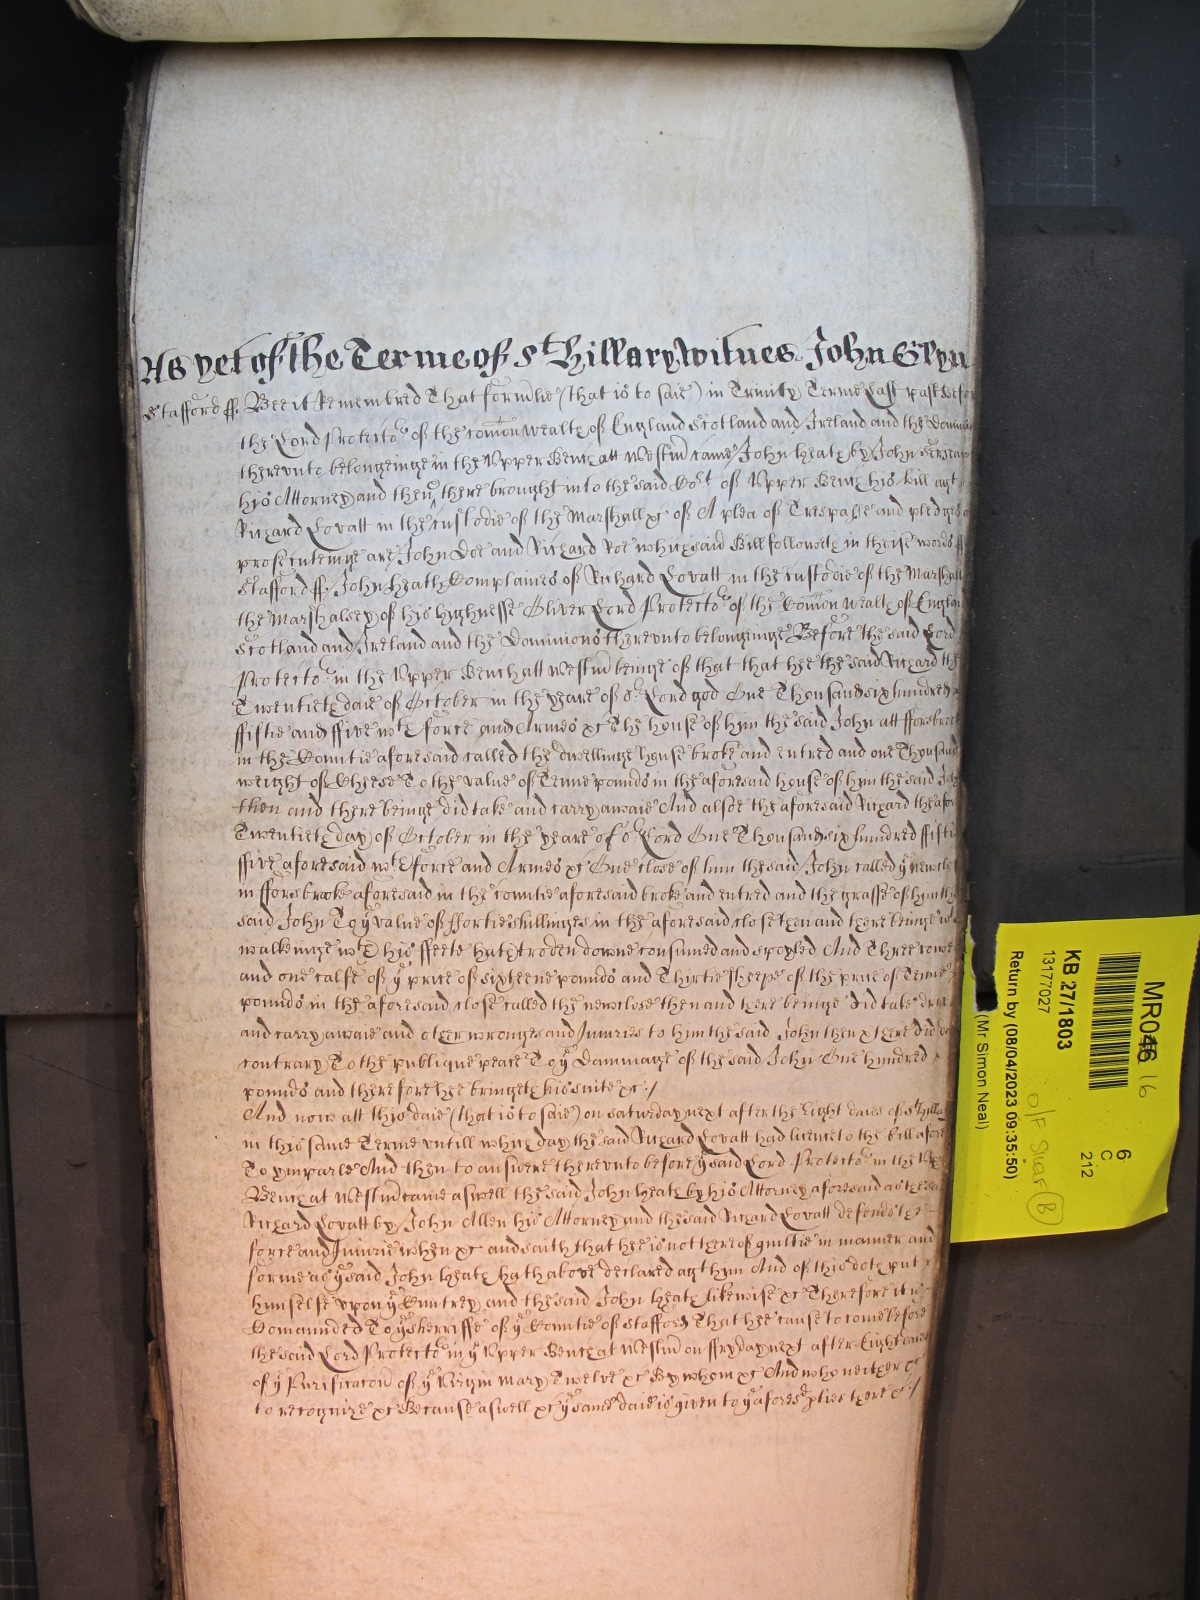 As yet of the Terme of St Hillary Witnes John Glyn
Stafford ss. Bee it Remembred That formlie (that is to saie) in Trinity Terme Last past Befo
the Lord Protector of the comon wealth of England Scotland and Ireland and the Domini
therevnto belongeinge in the Vpper Bench att Westm came John Heath by John
his Attorney and then & there brought into the said Cort of Vpper Bench his bill agt
Richard Lovatt in the custodie of the Marshall &c of A plea of Trespasse and pledges o
prosecuteinge are John Doe and Richard Roe which said Bill followeth in theise words ss
Stafford ss. John Heath Complaines of Richard Lovatt in the custodie of the Marshall
the Marshalsey of his highnesse Oliver Lord Protector of the Comon wealth of Englan
Scotland and Ireland and the Dominions therevnto belonginge Before the said Lord
Protector in the Vpper Bench att Westm beinge of that that hee the said Richard the
Twentieth daie of October in the yeare of or Lord god One Thousand six hundred
fiftie and ffive wth fforce and Armes &c The house of him the said John att fforsbrooke
in the Countie aforesaid called the dwellinge house broke and entred and one Thousand
weight of Cheese To the value of Tenne pounds in the aforesaid house of him the said Joh
then and there beinge did take and carry awaie And alsoe the aforesaid Richard the afor
Twentieth day of October in the yeare of or Lord One Thousand six hundred fiftie
ffive aforesaid wth fforce and Armes &c One close of him the said John called ye newclos
in fforsbrooke aforesaid in the countie aforesaid broke and entred and the grasse of him the
said John To ye value of ffortie shillinges in the aforesaid close then and there beinge wth
walkeinge wth his ffeete hath troden downe consumed and spoyled And Three cowes
and one calfe of ye price of sixteene pounds and Thirtie sheepe of the price of Tenne
pounds in the aforesaid close called the newclose then and there beinge did take drive
and carry awaie and other wronges and Iniuries to him the said John then & there did
contrary To the publique peace To ye Dammage of the said John One hundred
pounds and therefore hee bringeth his suite &c./
And now att this daie (that is to saie) on saturday next after the Eight daies of St Hilla
in this same Terme vntill which day the said Richard Lovatt had licence to the bill afores
To ymparle And then to answere therevnto before ye said Lord Protector in the Vpp
Bench at Westm came aswell the said John Heath by his Attorney aforesaid as the sai
Richard Lovatt by John Allen his Attorney and the said Richard Lovatt defends the
force and Iniurie when &c and saith that hee is not thereof guiltie in manner and
forme as ye said John Heath hath above declared agt him And of this doth put
himselfe vpon ye Cuntrey and the said John Heath likewise &c Therefore it is
Comaunded To ye Sherriffe of ye Countie of Stafford That hee cause to come before
the said Lord Protector in ye Vpper Bench at Westm on ffryday next after Eight daies
of ye Purificacon of ye Virgin Mary Twelve &c By whom &c And who neither &c
to recognize &c Because aswell &c ye same daie is given to ye aforesd pties there &c./
MR046 16
6
C
212
KB 27/1803
13177027
Return by (08/04/2023 09:35:50)
(Mr Simon Neal)
O/F
B